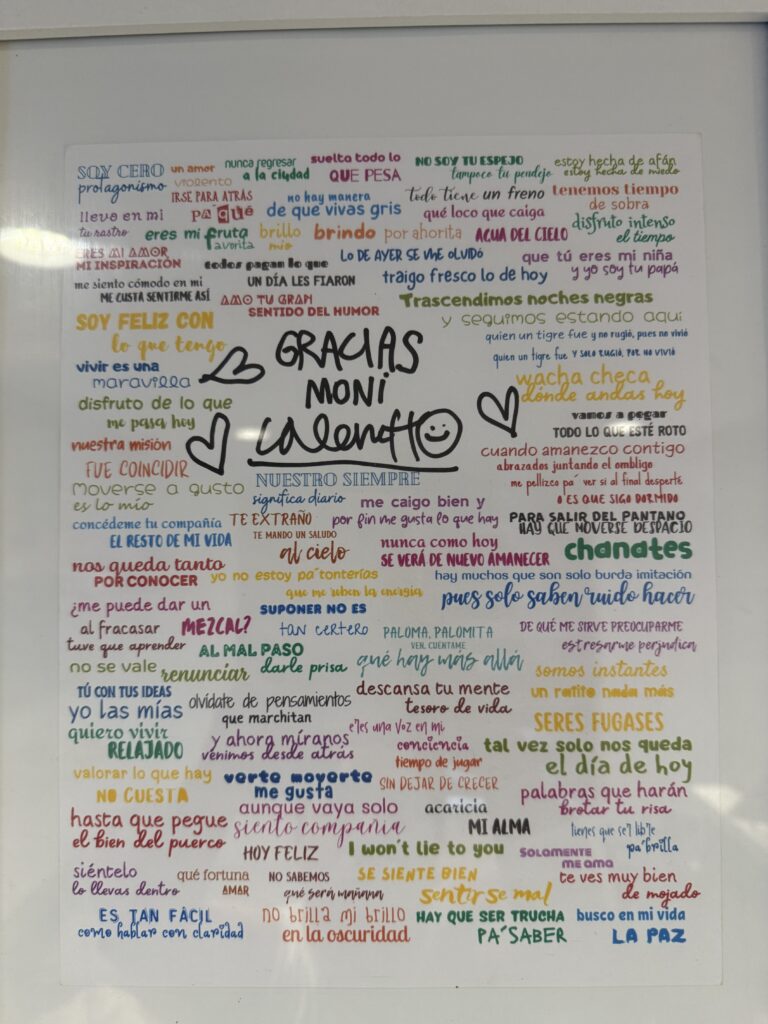 SOY CERO
protagonismo
un amor
violento
nunca regresar
a la ciudad
suelta todo lo
QUE PESA
NO SOY TU ESPEJO
tampoco tu pendejo
estoy hecha de afán
estoy hecha de miedo
llevo en mi
tu rastro
IRSE PARA ATRÁS
pa' qué
no hay manera
de que vivas gris
todo tiene un freno
qué loco que caiga
tenemos tiempo
de sobra
eres mi fruta
favorita
brillo
mío
brindo por ahorita
AGUA DEL CIELO
disfruto intenso
el tiempo
ERES MI AMOR
MI INSPIRACIÓN
todos pagan lo que
UN DÍA LES FIARON
LO DE AYER SE ME OLVIDÓ
traigo fresco lo de hoy
que tú eres mi niña
y yo soy tu papá
me siento cómodo en mi
ME GUSTA SENTIRME ASÍ
AMO TU GRAN
SENTIDO DEL HUMOR
Trascendimos noches negras
y seguimos estando aquí
SOY FELIZ CON
lo que tengo
quien un tigre fue y no rugió, pues no vivió
quien un tigre fue y SOLO RUGIÓ, POR NO VIVIÓ
GRACIAS
MONI
vivir es una
maravilla
wacha checa
dónde andas hoy
disfruto de lo que
me pasa hoy
vamos a pegar
TODO LO QUE ESTÉ ROTO
nuestra misión
FUE COINCIDIR
cuando amanezco contigo
abrazados juntando el ombligo
me pellizco pa´ ver si al final desperté
O ES QUE SIGO DORMIDO
Moverse a gusto
es lo mío
NUESTRO SIEMPRE
significa diario
me caigo bien y
por fin me gusta lo que hay
PARA SALIR DEL PANTANO
HAY QUE MOVERSE DESPACIO
concédeme tu compañía
EL RESTO DE MI VIDA
TE EXTRAÑO
TE MANDO UN SALUDO
al cielo
nunca como hoy
SE VERÁ DE NUEVO AMANECER
chanates
nos queda tanto
POR CONOCER
yo no estoy pa´tonterías
que me roben la energía
hay muchos que son solo burda imitación
pues solo saben ruido hacer
¿me puede dar un
MEZCAL?
SUPONER NO ES
tan certero
al fracasar
tuve que aprender
AL MAL PASO
darle prisa
PALOMA, PALOMITA
VEN, CUENTAME
qué hay más allá
DE QUÉ ME SIRVE PREOCUPARME
estresarme perjudica
no se vale
renunciar
somos instantes
un ratito nada más
TÚ CON TUS IDEAS
yo las mías
olvídate de pensamientos
que marchitan
descansa tu mente
tesoro de vida
SERES FUGASES
quiero vivir
RELAJADO
y ahora míranos
venimos desde atrás
eres una voz en mi
conciencia
tal vez solo nos queda
el día de hoy
valorar lo que hay
NO CUESTA
verte moverte
me gusta
tiempo de jugar
SIN DEJAR DE CRECER
palabras que harán
brotar tu risa
hasta que pegue
el bien del puerco
aunque vaya solo
siento compañia
acaricia
MI ALMA
tienes que ser libre
pa´brilla
HOY FELIZ
I won't lie to you
SOLAMENTE
ME AMA
siéntelo
lo llevas dentro
qué fortuna
AMAR
NO SABEMOS
qué será mañana
SE SIENTE BIEN
sentirse mal
te ves muy bien
de mojado
ES TAN FÁCIL
como hablar con claridad
no brilla mi brillo
en la oscuridad
HAY QUE SER TRUCHA
PA´SABER
busco en mi vida
LA PAZ